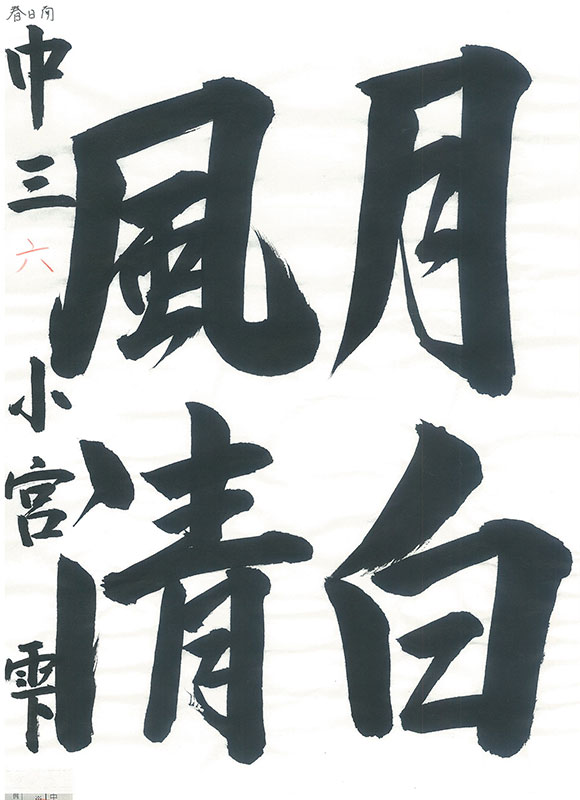 月白
風清
中三 六 小宮 雫
春日南